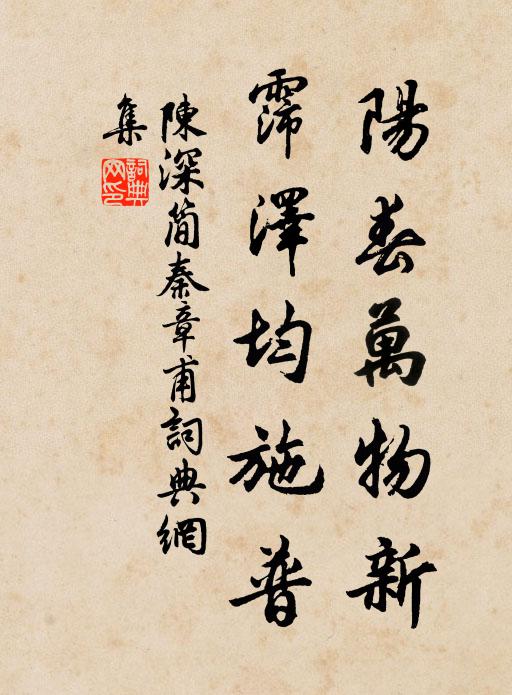 陽春萬物新
霈澤均施普
陳深簡秦章甫詞典網
集
詞典網印